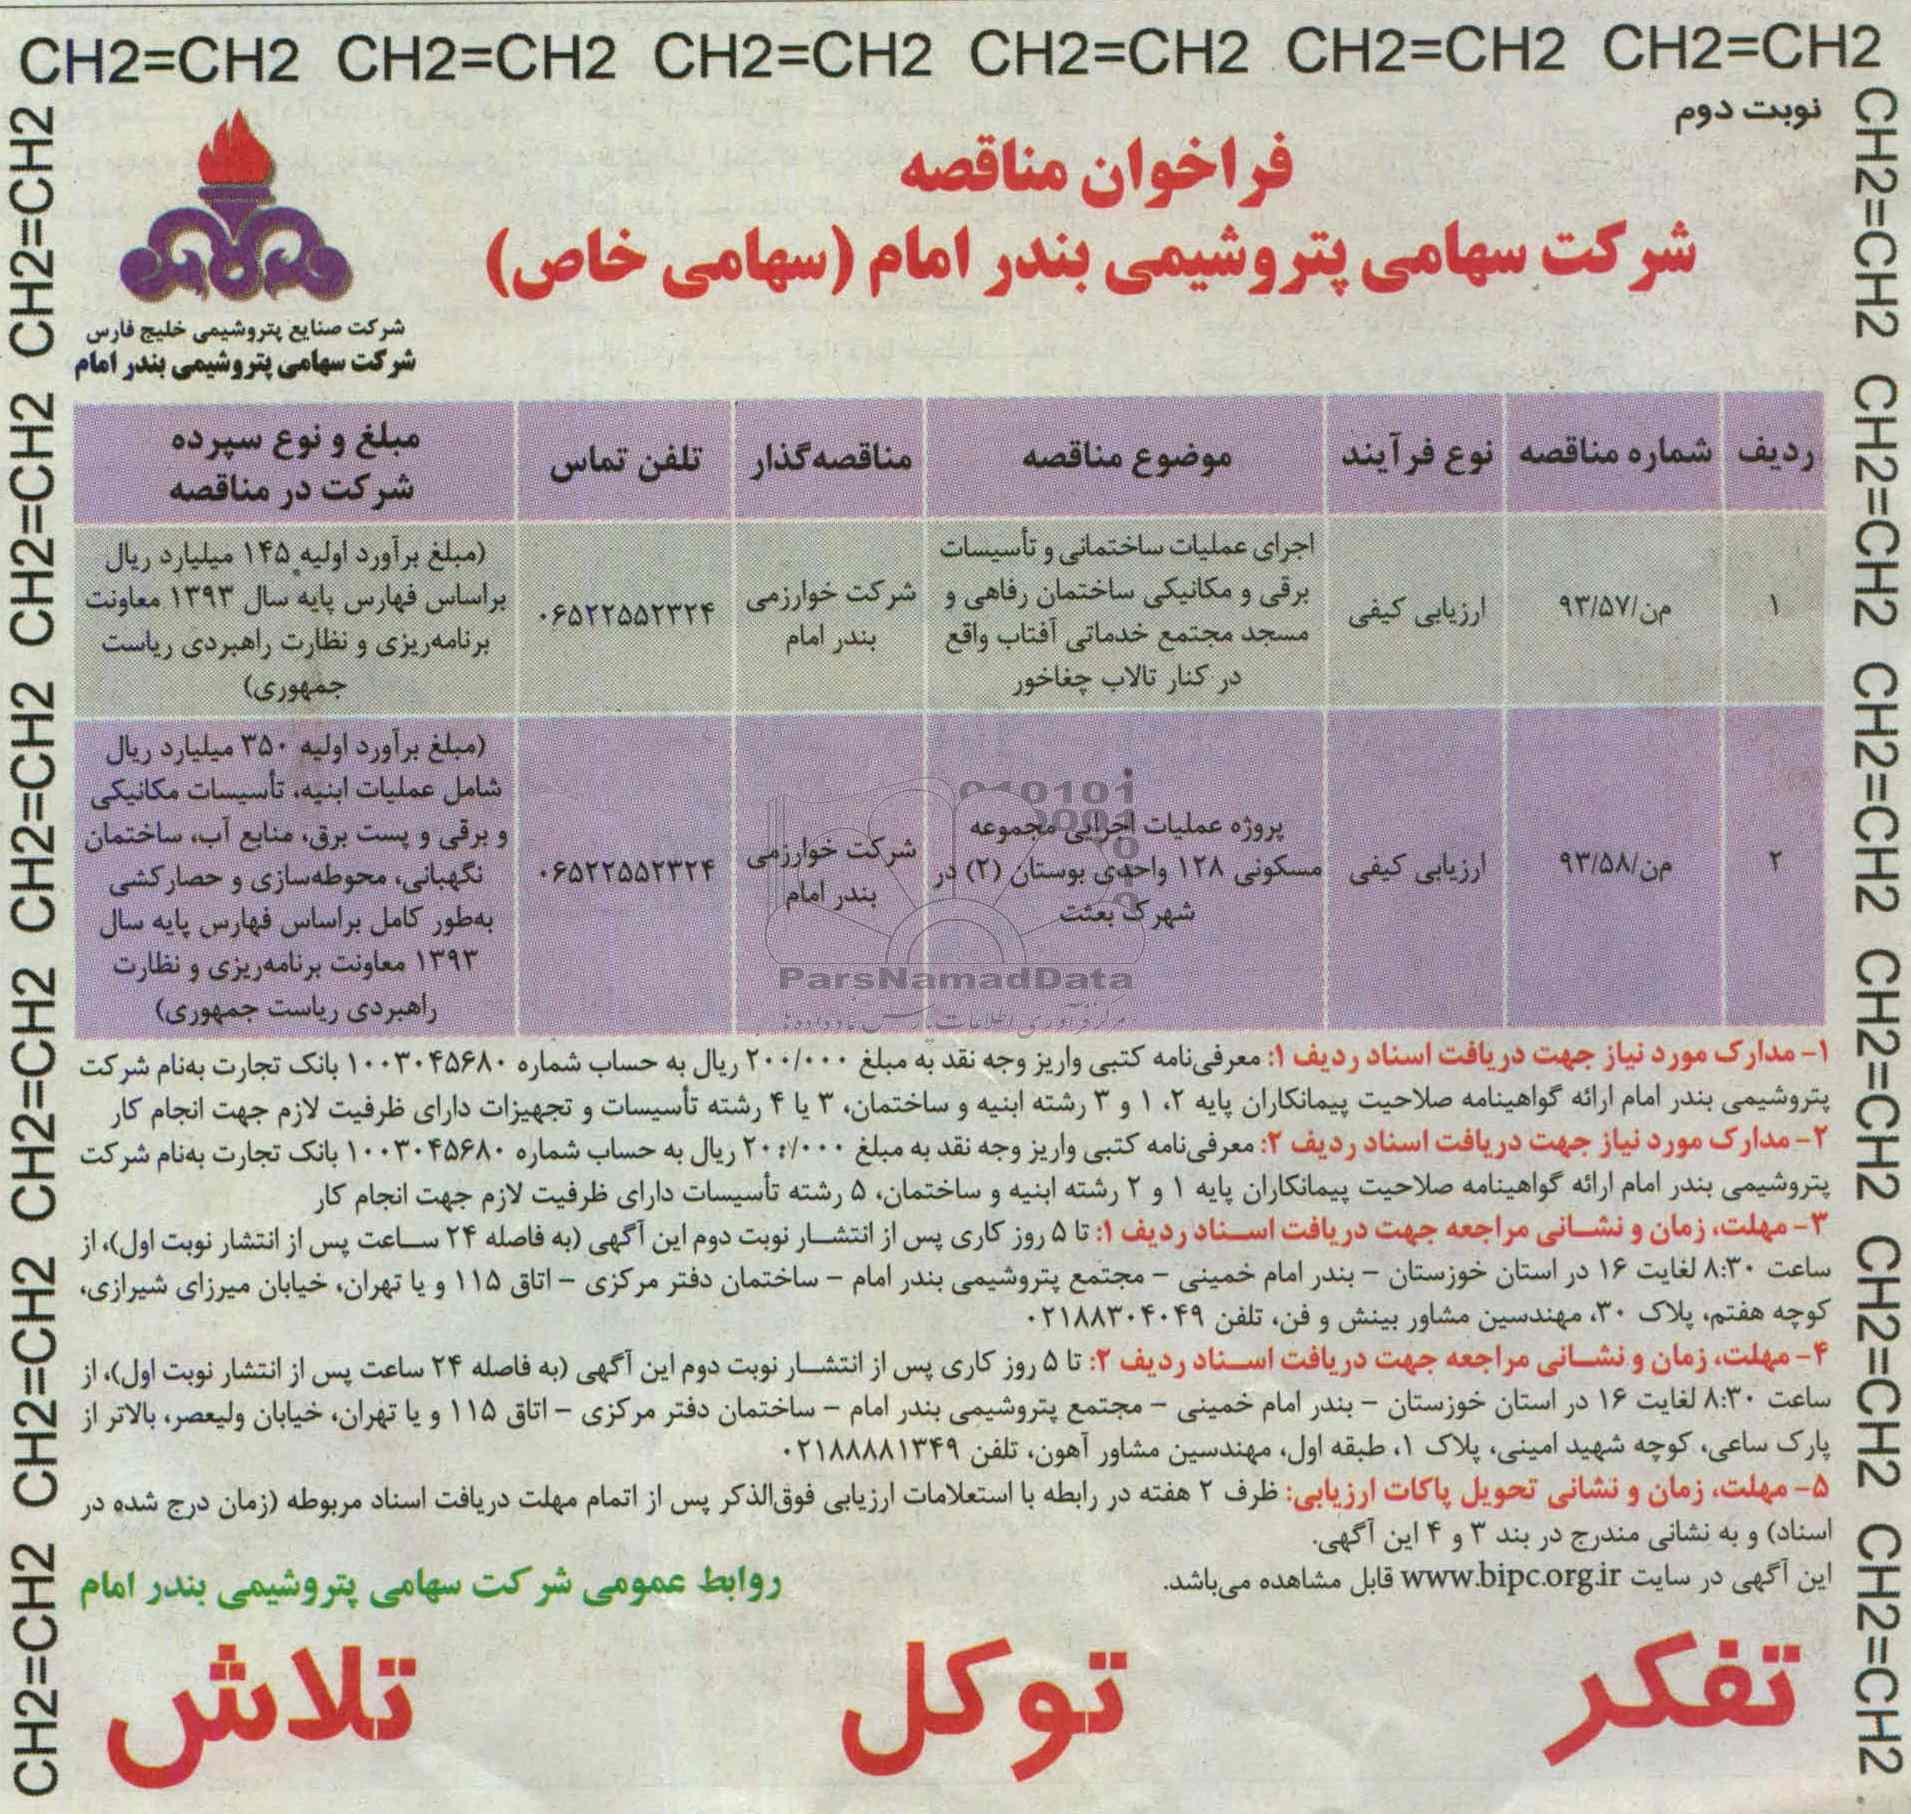 CH2=CH2 CH2=CH2 CH2=CH2 CH2=CH2 CH2=CH2 CH2=CH2
نوبت دوم
فراخوان مناقصه
شرکت سهامی پتروشیمی بندر امام (سهامی خاص)
شرکت صنایع پتروشیمی خلیج فارس
شرکت سهامی پتروشیمی بندر امام
CH2=CH2 CH2=CH2 CH2=CH2 CH2=CH2 CH2=CH2 CH2=CH2
CH2=CH2 CH2=CH2 CH2=CH2 CH2=CH2 CH2=CH2 CH2=CH2
ردیف
شماره مناقصه
نوع فرآیند
موضوع مناقصه
مناقصه‌گذار
تلفن تماس
مبلغ و نوع سپرده
شرکت در مناقصه
۱
من/۹۳/۵۷
ارزیابی کیفی
اجرای عملیات ساختمانی و تأسیسات
برقی و مکانیکی ساختمان رفاهی و
مسجد مجتمع خدماتی آفتاب واقع
در کنار تالاب چغاخور
شرکت خوارزمی
بندر امام
۰۶۵۲۲۵۵۲۳۲۴
(مبلغ برآورد اولیه ۱۴۵ میلیارد ریال
براساس فهارس پایه سال ۱۳۹۳ معاونت
برنامه‌ریزی و نظارت راهبردی ریاست
جمهوری)
۲
من/۹۳/۵۸
ارزیابی کیفی
پروژه عملیات اجرایی مجموعه
مسکونی ۱۲۸ واحدی بوستان (۲) در
شهرک بعثت
شرکت خوارزمی
بندر امام
۰۶۵۲۲۵۵۲۳۲۴
(مبلغ برآورد اولیه ۳۵۰ میلیارد ریال
شامل عملیات ابنیه، تأسیسات مکانیکی
و برقی و پست برق، منابع آب، ساختمان
نگهبانی، محوطه‌سازی و حصارکشی
به‌طور کامل براساس فهارس پایه سال
۱۳۹۳ معاونت برنامه‌ریزی و نظارت
راهبردی ریاست جمهوری)
ParsNamadData
مرکز فرآوری اطلاعات پارس نماد داده ها
۱- مدارک مورد نیاز جهت دریافت اسناد ردیف ۱: معرفی‌نامه کتبی واریز وجه نقد به مبلغ ۲۰۰/۰۰۰ ریال به حساب شماره ۱۰۰۳۰۴۵۶۸۰ بانک تجارت به‌نام شرکت
پتروشیمی بندر امام ارائه گواهینامه صلاحیت پیمانکاران پایه ۲، ۱ و ۳ رشته ابنیه و ساختمان، ۳ یا ۴ رشته تأسیسات و تجهیزات دارای ظرفیت لازم جهت انجام کار
۲- مدارک مورد نیاز جهت دریافت اسناد ردیف ۲: معرفی‌نامه کتبی واریز وجه نقد به مبلغ ۲۰۰/۰۰۰ ریال به حساب شماره ۱۰۰۳۰۴۵۶۸۰ بانک تجارت به‌نام شرکت
پتروشیمی بندر امام ارائه گواهینامه صلاحیت پیمانکاران پایه ۱ و ۲ رشته ابنیه و ساختمان، ۵ رشته تأسیسات دارای ظرفیت لازم جهت انجام کار
۳- مهلت، زمان و نشانی مراجعه جهت دریافت اسناد ردیف ۱: تا ۵ روز کاری پس از انتشار نوبت دوم این آگهی (به فاصله ۲۴ ساعت پس از انتشار نوبت اول)، از
ساعت ۸:۳۰ لغایت ۱۶ در استان خوزستان – بندر امام خمینی – مجتمع پتروشیمی بندر امام – ساختمان دفتر مرکزی – اتاق ۱۱۵ و یا تهران، خیابان میرزای شیرازی،
کوچه هفتم، پلاک ۳۰، مهندسین مشاور بینش و فن، تلفن ۰۲۱۸۸۳۰۴۰۴۹
۴- مهلت، زمان و نشانی مراجعه جهت دریافت اسناد ردیف ۲: تا ۵ روز کاری پس از انتشار نوبت دوم این آگهی (به فاصله ۲۴ ساعت پس از انتشار نوبت اول)، از
ساعت ۸:۳۰ لغایت ۱۶ در استان خوزستان – بندر امام خمینی – مجتمع پتروشیمی بندر امام – ساختمان دفتر مرکزی – اتاق ۱۱۵ و یا تهران، خیابان ولیعصر، بالاتر از
پارک ساعی، کوچه شهید امینی، پلاک ۱، طبقه اول، مهندسین مشاور آهون، تلفن ۰۲۱۸۸۸۸۱۳۴۹
۵- مهلت، زمان و نشانی تحویل پاکات ارزیابی: ظرف ۲ هفته در رابطه با استعلامات ارزیابی فوق‌الذکر پس از اتمام مهلت دریافت اسناد مربوطه (زمان درج شده در
اسناد) و به نشانی مندرج در بند ۳ و ۴ این آگهی.
این آگهی در سایت www.bipc.org.ir قابل مشاهده می‌باشد.
روابط عمومی شرکت سهامی پتروشیمی بندر امام
تفکر توکل تلاش